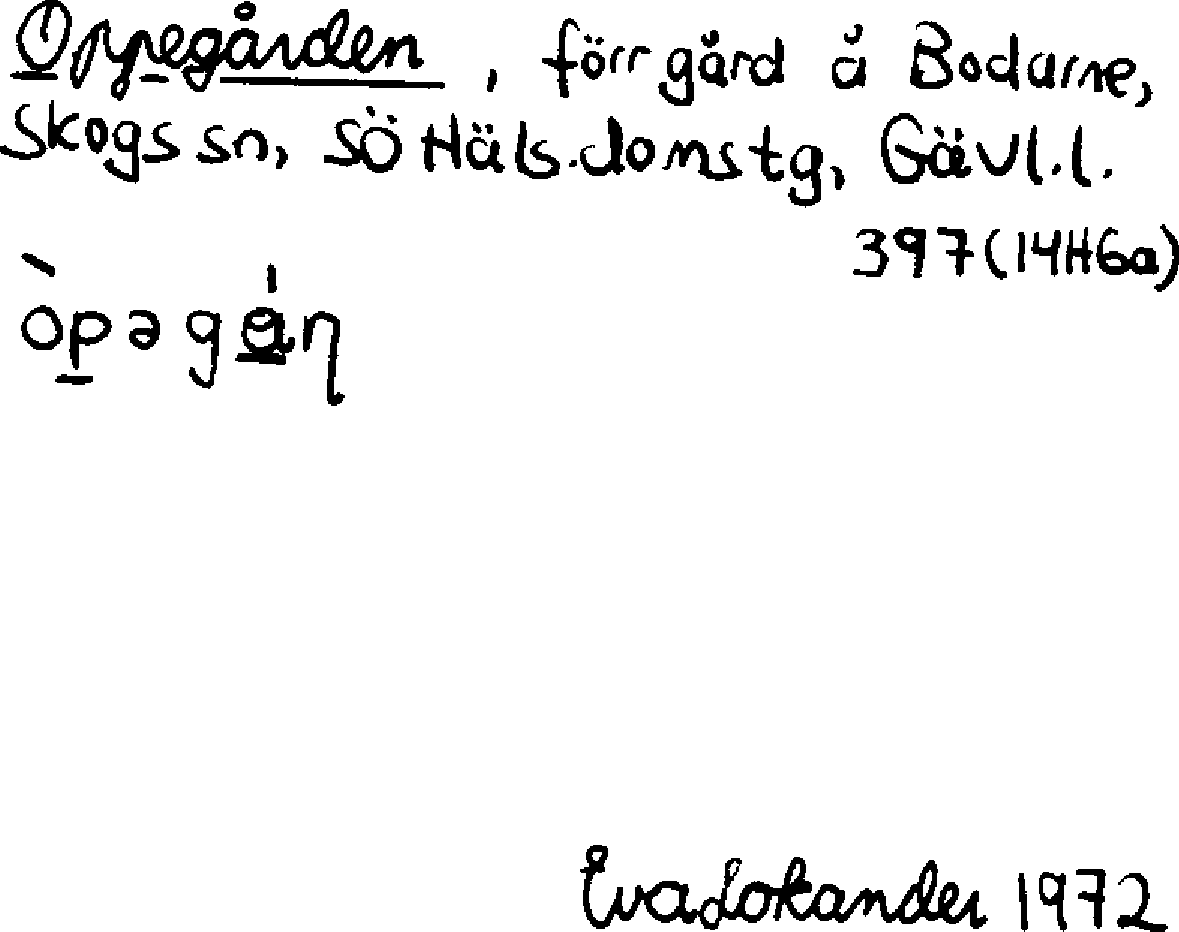 Oppegården, förr gård å Bodarne,
Skogs sn, Sö Häls. domstg, Gävl.l.
397 (14H6a)
òpəgɑ́ɳ
Eva Lokander 1972